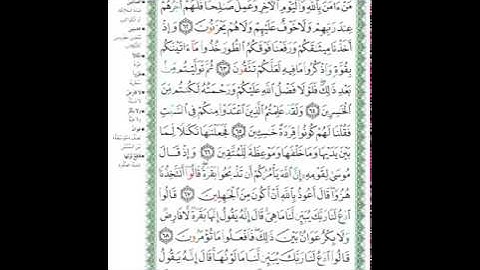 مَنْ ءَامَنَ بِاللَّهِ وَالْيَوْمِ الْآخِرِ وَعَمِلَ صَالِحًا فَلَهُمْ أَجْرُهُمْ
عِندَ رَبِّهِمْ وَلَا خَوْفٌ عَلَيْهِمْ وَلَا هُمْ يَحْزَنُونَ ٦٢ وَإِذْ
أَخَذْنَا مِيثَاقَكُمْ وَرَفَعْنَا فَوْقَكُمُ الطُّورَ خُذُوا مَا ءَاتَيْنَاكُم
بِقُوَّةٍ وَاذْكُرُوا مَا فِيهِ لَعَلَّكُمْ تَتَّقُونَ ٦٣ ثُمَّ تَوَلَّيْتُم مِّن
بَعْدِ ذَٰلِكَ فَلَوْلَا فَضْلُ اللَّهِ عَلَيْكُمْ وَرَحْمَتُهُ لَكُنتُم مِّنَ
الْخَاسِرِينَ ٦٤ وَلَقَدْ عَلِمْتُمُ الَّذِينَ اعْتَدَوْا مِنكُمْ فِي السَّبْتِ
فَقُلْنَا لَهُمْ كُونُوا قِرَدَةً خَاسِئِينَ ٦٥ فَجَعَلْنَاهَا نَكَالًا لِّمَا
بَيْنَ يَدَيْهَا وَمَا خَلْفَهَا وَمَوْعِظَةً لِّلْمُتَّقِينَ ٦٦ وَإِذْ قَالَ
مُوسَىٰ لِقَوْمِهِ إِنَّ اللَّهَ يَأْمُرُكُمْ أَن تَذْبَحُوا بَقَرَةً قَالُوا أَتَتَّخِذُنَا
هُزُوًا قَالَ أَعُوذُ بِاللَّهِ أَنْ أَكُونَ مِنَ الْجَاهِلِينَ ٦٧ قَالُوا
ادْعُ لَنَا رَبَّكَ يُبَيِّن لَّنَا مَا هِيَ قَالَ إِنَّهُ يَقُولُ إِنَّهَا بَقَرَةٌ لَّا فَارِضٌ
وَلَا بِكْرٌ عَوَانٌ بَيْنَ ذَٰلِكَ فَافْعَلُوا مَا تُؤْمَرُونَ ٦٨
قَالُوا ادْعُ لَنَا رَبَّكَ يُبَيِّن لَّنَا مَا لَوْنُهَا قَالَ إِنَّهُ يَقُولُ